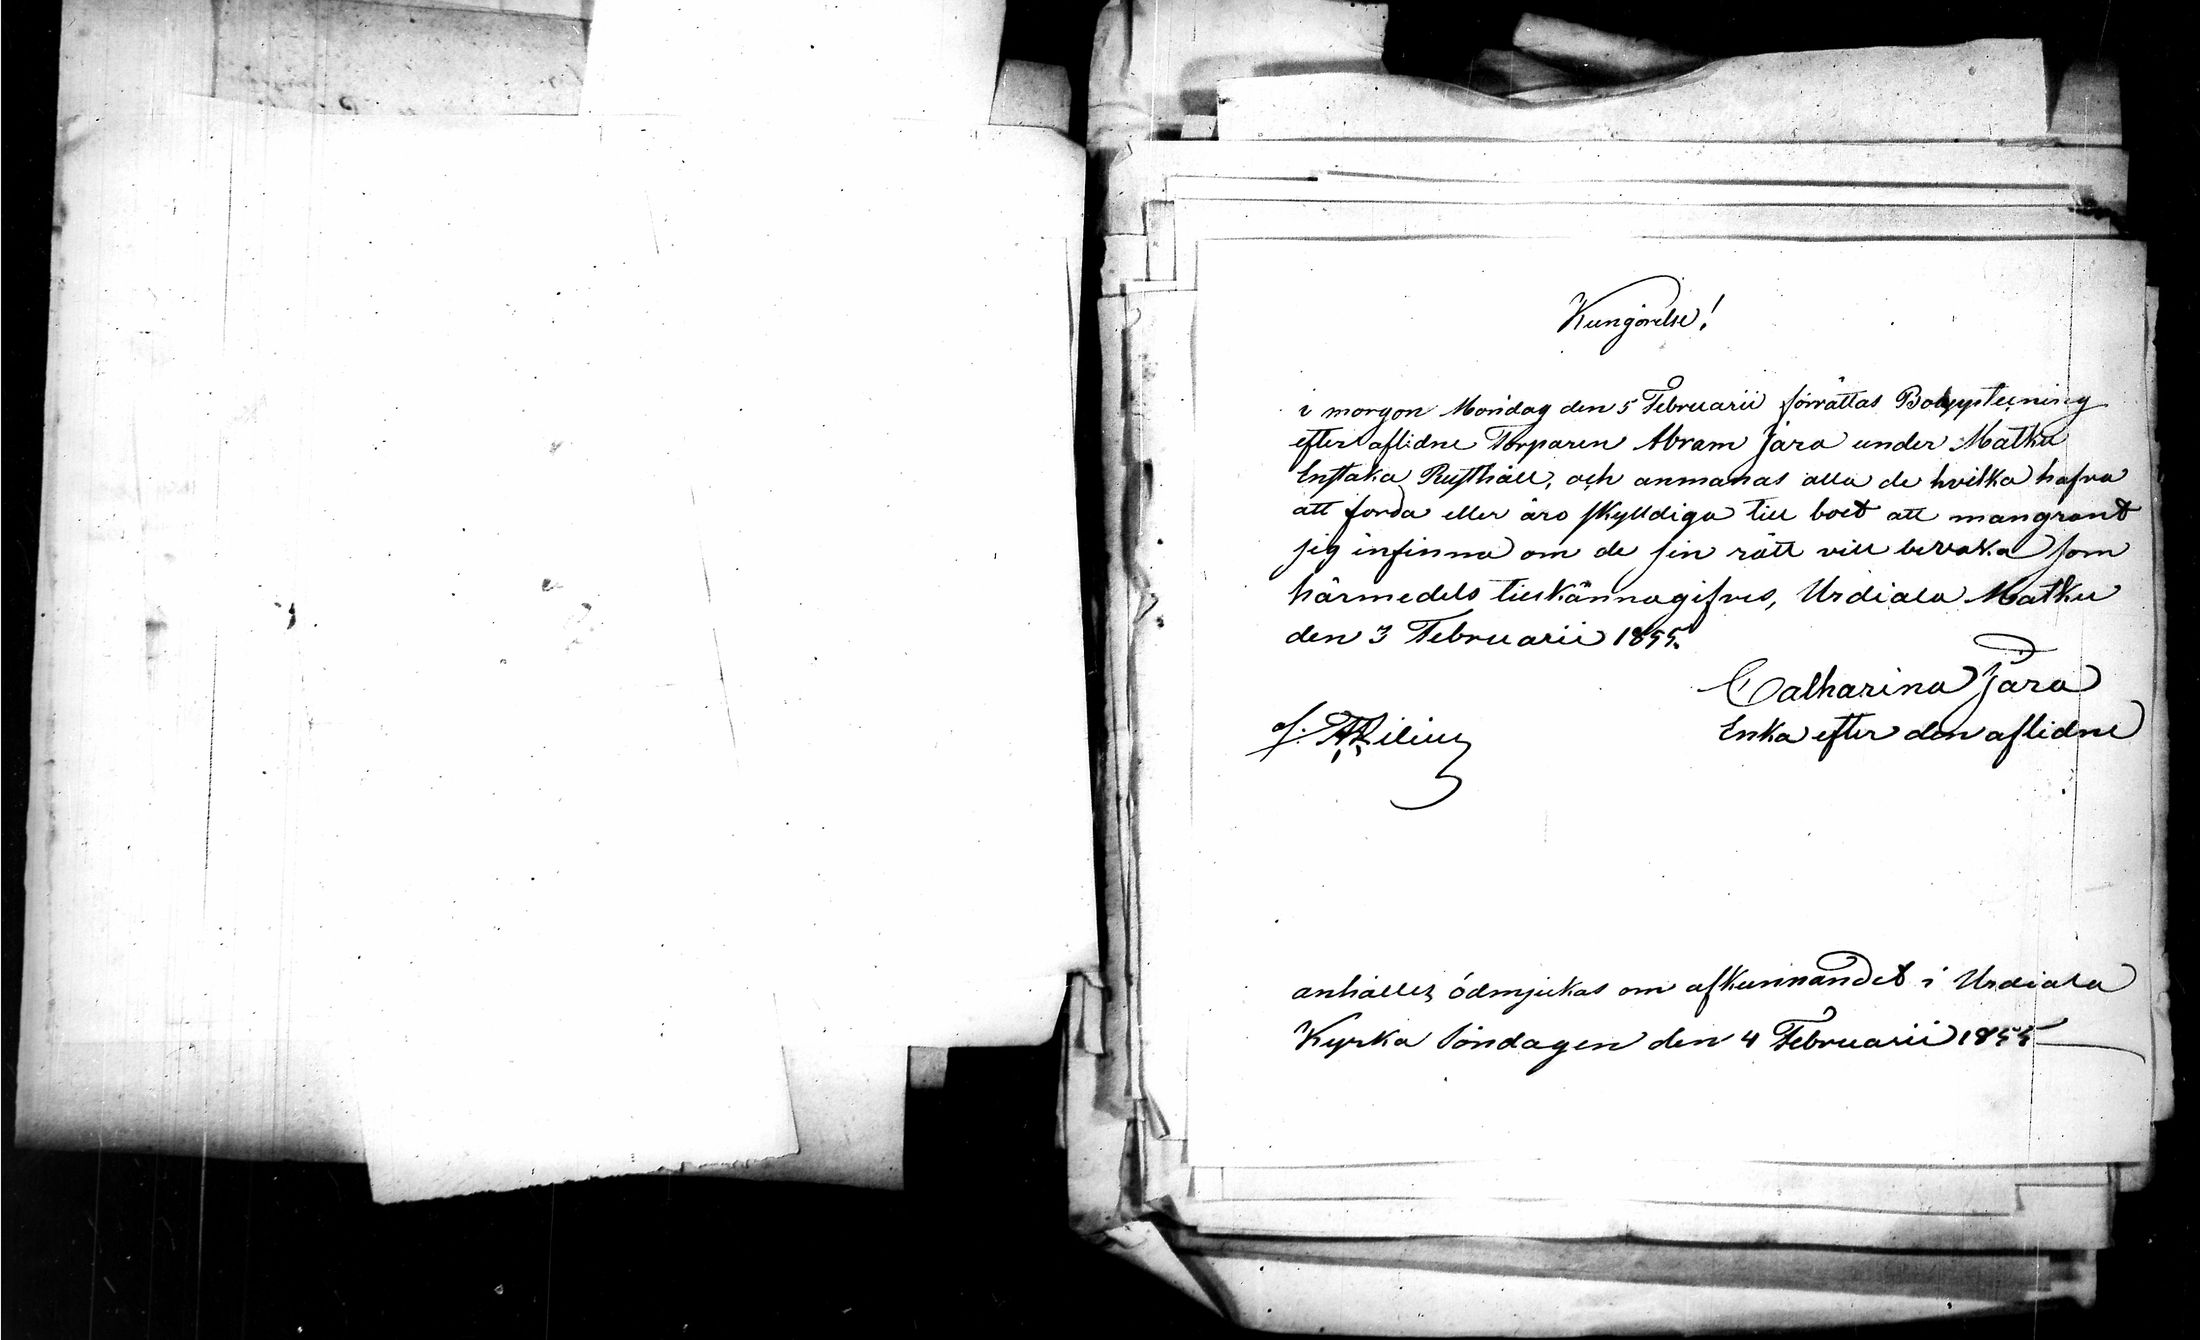 Kungörelse!
i morgon Mondag den 5 Februarii förrättas Bouppteckning
efter aflidne Torparen Abram Jara under Matku
Enstaka Rusthåll, och anmanas alla de hvilka hafva
att fordra eller äro skylldiga till boet att mangrant
sig infinna om de sin rätt vill bevaka som
härmedels tillkännagifves, Urdiala Matku
den 3 Februarii 1855.
Catharina Jara
Enka efter den aflidne
anhålles ödmjukas om afkunnandet i Urdiala
Kyrka Söndagen den 4 Februarii 1855